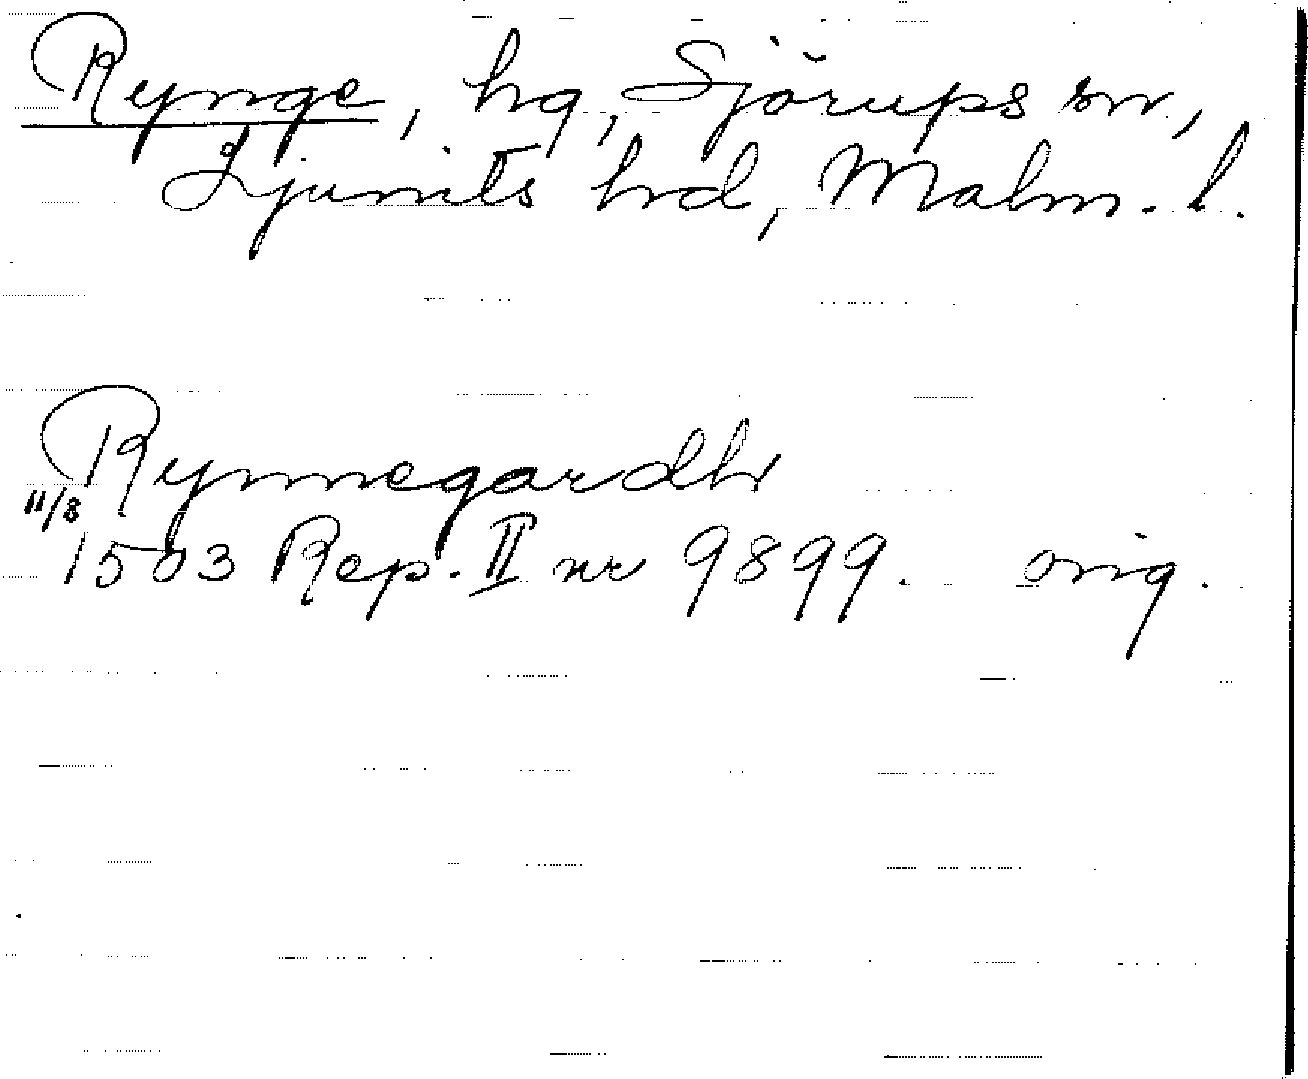 Rynge, hg, Sjörups sn,
Ljunits hrd, Malm. l.
Rynnegardh
11/8
1503 Rep. II nr 9899. orig.